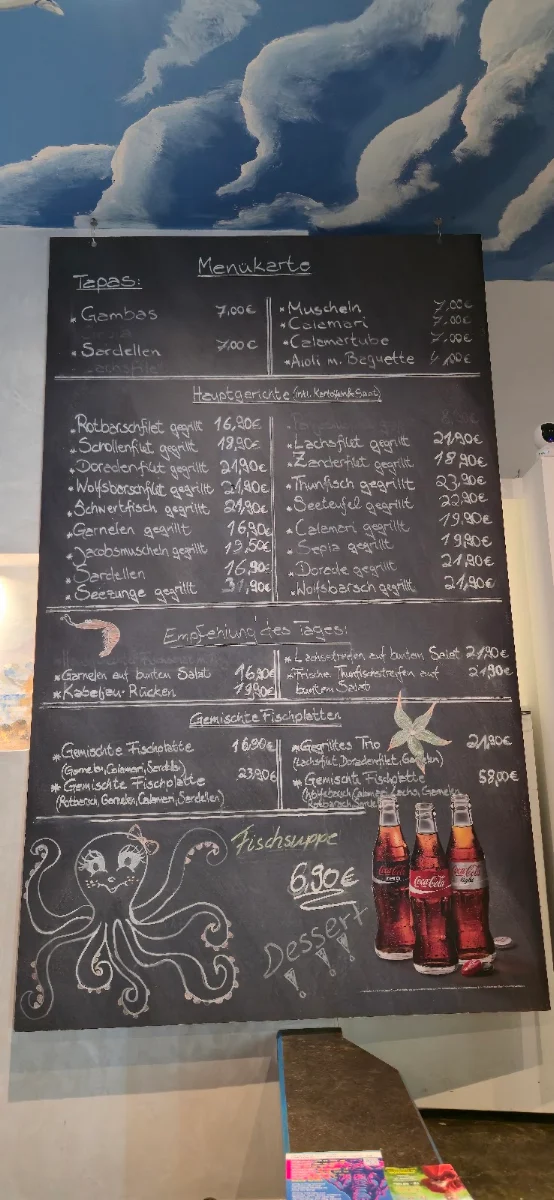 Menükarte
Tapas:
* Gambas 7,00€
* Sardellen 7,00€
* Muscheln 7,00€
* Calamari 7,00€
* Calamartube 7,00€
* Aioli m. Baguette
Hauptgerichte (inkl. Kartoffeln & Salat)
* Rotbarschfilet gegrillt 16,90€
* Schollenfilet gegrillt 18,90€
* Doradenfilet gegrillt 21,90€
* Wolfsbarschfilet gegrillt 21,90€
* Schwertfisch gegrillt 21,90€
* Garnelen gegrillt 16,90€
* Jacobsmuscheln gegrillt 19,50€
* Sardellen 16,90€
* Seezunge gegrillt 31,90€
* Lachsfilet gegrillt 21,90€
* Zanderfilet gegrillt 18,90€
* Thunfisch gegrillt 23,90€
* Seeteufel gegrillt 22,90€
* Calamari gegrillt 19,90€
* Sepia gegrillt 19,90€
* Dorade gegrillt 21,90€
* Wolfsbarsch gegrillt 21,90€
Empfehlung des Tages:
* Garnelen auf buntem Salat 16,90€
* Kabeljau-Rücken 19,90€
* Lachsstreifen auf buntem Salat 21,90€
* Frische Thunfischstreifen auf 21,90€
buntem Salat
Gemischte Fischplatten
* Gemischte Fischplatte 16,90€
(Garnelen, Calamari, Sardellen)
* Gemischte Fischplatte 23,90€
(Rotbarsch, Garnelen, Calamari, Sardellen)
* Gegrilltes Trio 21,90€
(Lachsfilet, Doradenfilet, Garnelen)
* Gemischte Fischplatte 58,00€
Calamari, Lachs, Garnelen,
Rotbarsch,
Fischsuppe
6,90€
Dessert
!!!
Coca-Cola
zero
Coca-Cola
Coca-Cola
light